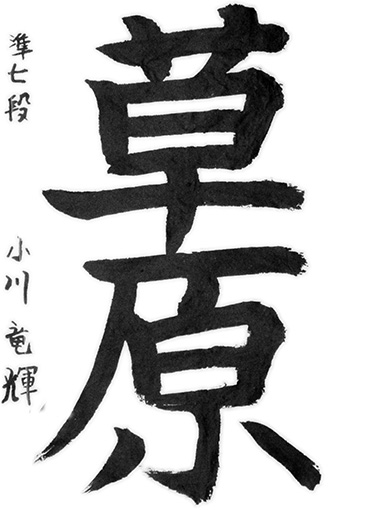 草原
準七段
小川竜輝